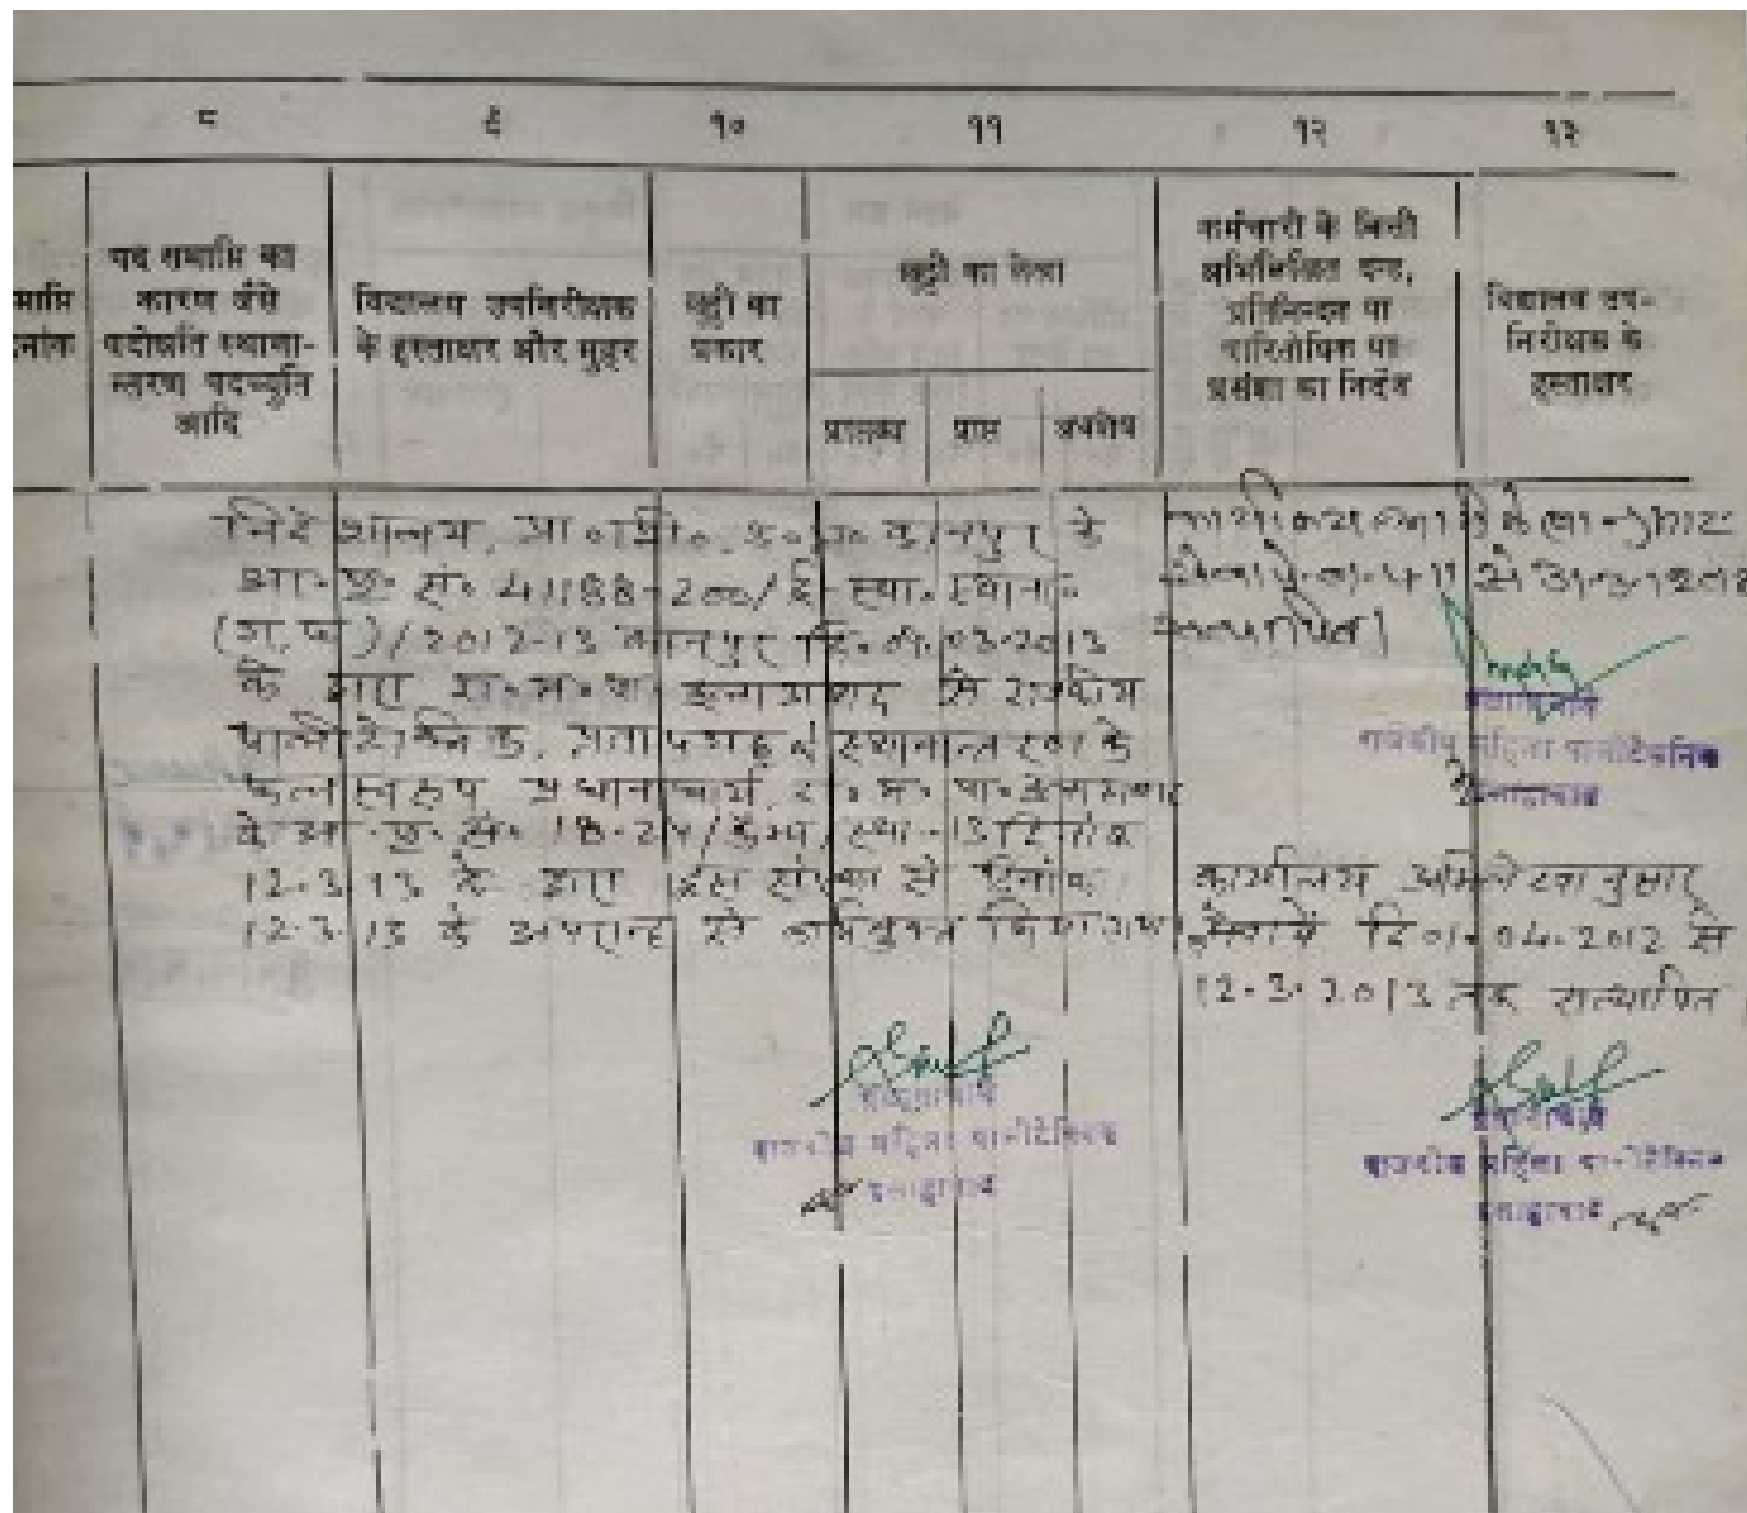 ८ ९ १० ११ १२ १३
माप्ति
नांक
पद समाप्ति का
कारण जैसे
पदोन्नति स्थाना-
न्तरण पदच्युति
आदि
विद्यालय उपनिरीक्षक
के हस्ताक्षर और मुहर
छुट्टी का
प्रकार
छुट्टी का लेखा
प्राप्तव्य प्राप्त अवशेष
कर्मचारी के किसी
अभिलिखित दण्ड,
प्रतिनिन्दन या
पारितोषिक या
प्रसंशा का निर्देश
विद्यालय उप-
निरीक्षक के
हस्ताक्षर
निदेशालय, प्रा०शि०, उ०प्र० कानपुर के
आ० पृ० सं० 4188-200/ई-स्था० स्थाना०
/2012-13 कानपुर दि० 03-2013
के द्वारा रा०म०पा० इलाहाबाद से राजकीय
पालीटेक्निक, प्रतापगढ़ स्थानान्तरण के
फलस्वरूप प्रधानाचार्य, रा० म० पा० इलाहाबाद
के पृ० सं० 18-24/ स्था०-13 दिनांक
12.3.13 के द्वारा इस संस्था से दिनांक
12.3.13 के अपरान्ह से कार्यमुक्त किया गया।
प्रधानाचार्य
राजकीय महिला पालीटेक्निक
इलाहाबाद
सत्यापित।
प्रधानाचार्य
राजकीय महिला पालीटेक्निक
इलाहाबाद
कार्यालय अभिलेखानुसार
सेवायें दि 01.04.2012 से
12.3.2013 तक सत्यापित
प्रधानाचार्य
राजकीय महिला पालीटेक्निक
इलाहाबाद